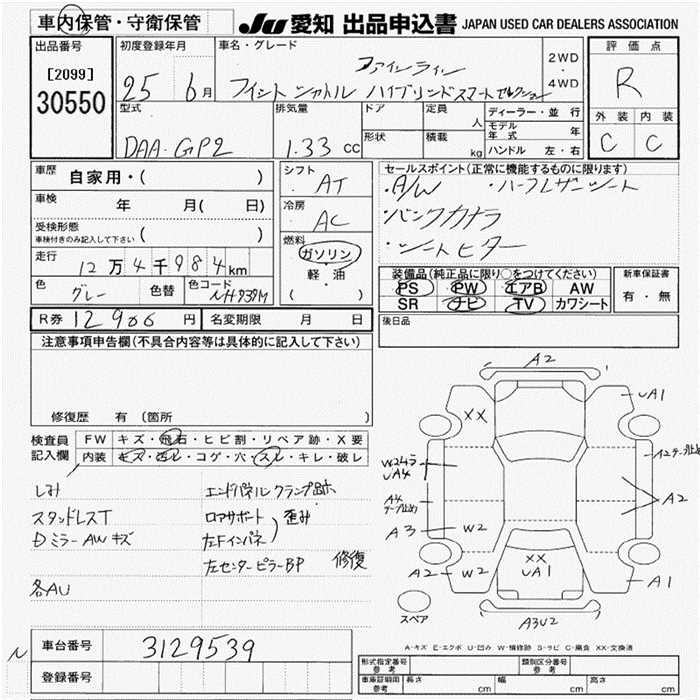 車内保管・守衛保管
JU 愛知 出品申込書 JAPAN USED CAR DEALERS ASSOCIATION
出品番号
[2099]
30550
初度登録年月
25 6月
車名・グレード
ファインライン
フィットシャトル ハイブリッドスマートセレクション
2WD
・
4WD
評価点
R
外装 内装
C C
型式
DAA-GP2
排気量
1.33 cc
ドア
形状
定員
人
積載
kg
ディーラー・並行
モデル年式 年
ハンドル 左・右
車歴
自家用・( )
車検
年 月( 日)
受検形態
車検付きのみ記入して下さい ( )
走行
12万4千984km
色
グレー
色替
色コード
NH737M
シフト
AT
冷房
AC
燃料
ガソリン
軽・油
( )
セールスポイント(正常に機能するものに限ります)
・A/W ・ハーフレザーシート
・バックカメラ
・シートヒーター
装備品(純正品に限り○をつけてください)
PS PW エアB AW
SR ナビ TV カワシート
新車保証書
有・無
後日品
R券 12900円
名変期限 月 日
注意事項申告欄(不具合内容等は具体的に記入して下さい)
修復歴 有(箇所 )
検査員
記入欄
FW キズ・飛石・ヒビ割・リペア跡・X要
内装 キズ・汚レ・コゲ・穴・スレ・キレ・破レ
しみ
スタッドレスT
Dミラー AWキズ
各AU
エンドパネルクランプ跡
ロアサポート
左Fインパネ
歪み
左センターピラーBP 修復
A2
XX
UA1
W2ヨラ
UA4
A4
テープ止め
A3
W2
A2
W2
A2テープ止め
A2
XX
UA1
A1
A3U2
スペア
A-キズ E-エクボ U-凹み W-補修跡 S-サビ C-腐食 XX-交換済
N
車台番号
3129539
登録番号
形式指定番号
参考
類別区分番号
参考
車庫証明用
参考
長さ cm
幅 cm
高さ cm